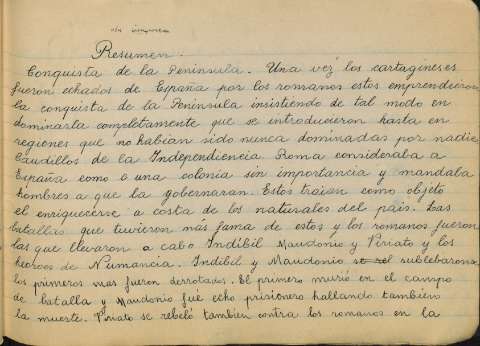 Resumen.
Conquista de la Península. Una vez los cartagineses
fueron echados de España por los romanos estos emprendieron
la conquista de la Península insistiendo de tal modo en
dominarla completamente que se introducieron hasta en
regiones que no habian sido nunca dominadas por nadie
Caudillos de la Independiencia Roma consideraba a
España como o una colonia sin importancia y mandaba
hombres a que la gobernaran. Estos traian como objeto
el enriquecerse a costa de los naturales del pais. Las
batallas que tuvieron mas fama de estos y los romanos fueron
las que llevaron a cabo Indíbil Maudonio y Viriato y los
heoroes de Numancia. Indibil y Maudonio se rel sublebaron
los primeros mas fueron derrotados. El primero murió en el campo
de batalla y Maudonio fué echo prisionero hallando tambien
la muerte. Viriato se rebeló tambien contra los romanos en la